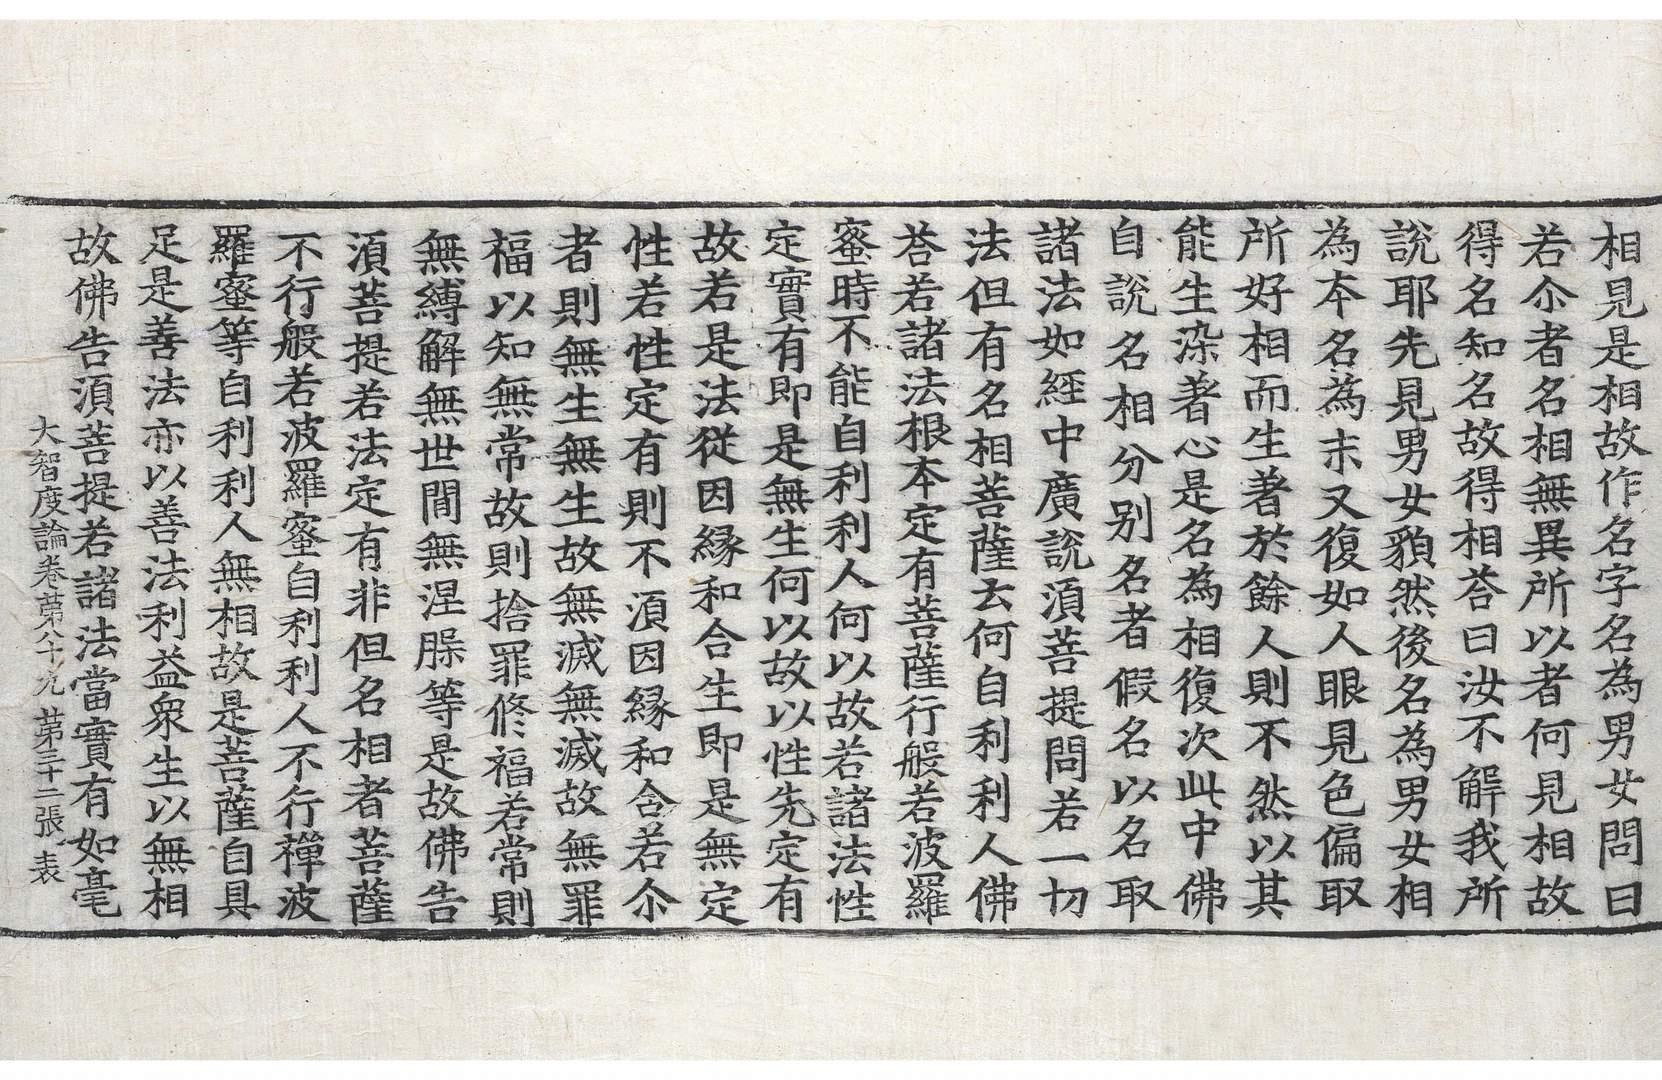 相見是相故作名字名為男女問曰
若尒者名相無異所以者何見相故
得名知名故得相荅曰汝不解我所
說耶先見男女貌然後名為男女相
為本名為末又復如人眼見色偏取
所好相而生著於餘人則不然以其
能生染著心是名為相復次此中佛
自說名相分別名者假名以名取
諸法如經中廣說須菩提問若一切
法但有名相菩薩云何自利利人佛
荅若諸法根本定有菩薩行般若波羅
蜜時不能自利利人何以故若諸法性
定實有即是無生何以故以性先定有
故若是法從因緣和合生即是無定
性若性定有則不須因緣和合若尒
者則無生無生故無滅無滅故無罪
福以知無常故則捨罪修福若常則
無縛解無世間無涅槃等是故佛告
須菩提若法定有非但名相者菩薩
不行般若波羅蜜自利利人不行禪波
羅蜜等自利利人無相故是菩薩自具
足是善法亦以善法利益眾生以無相
故佛告須菩提若諸法當實有如毫
大智度論卷苐八十九 苐三十二張 表